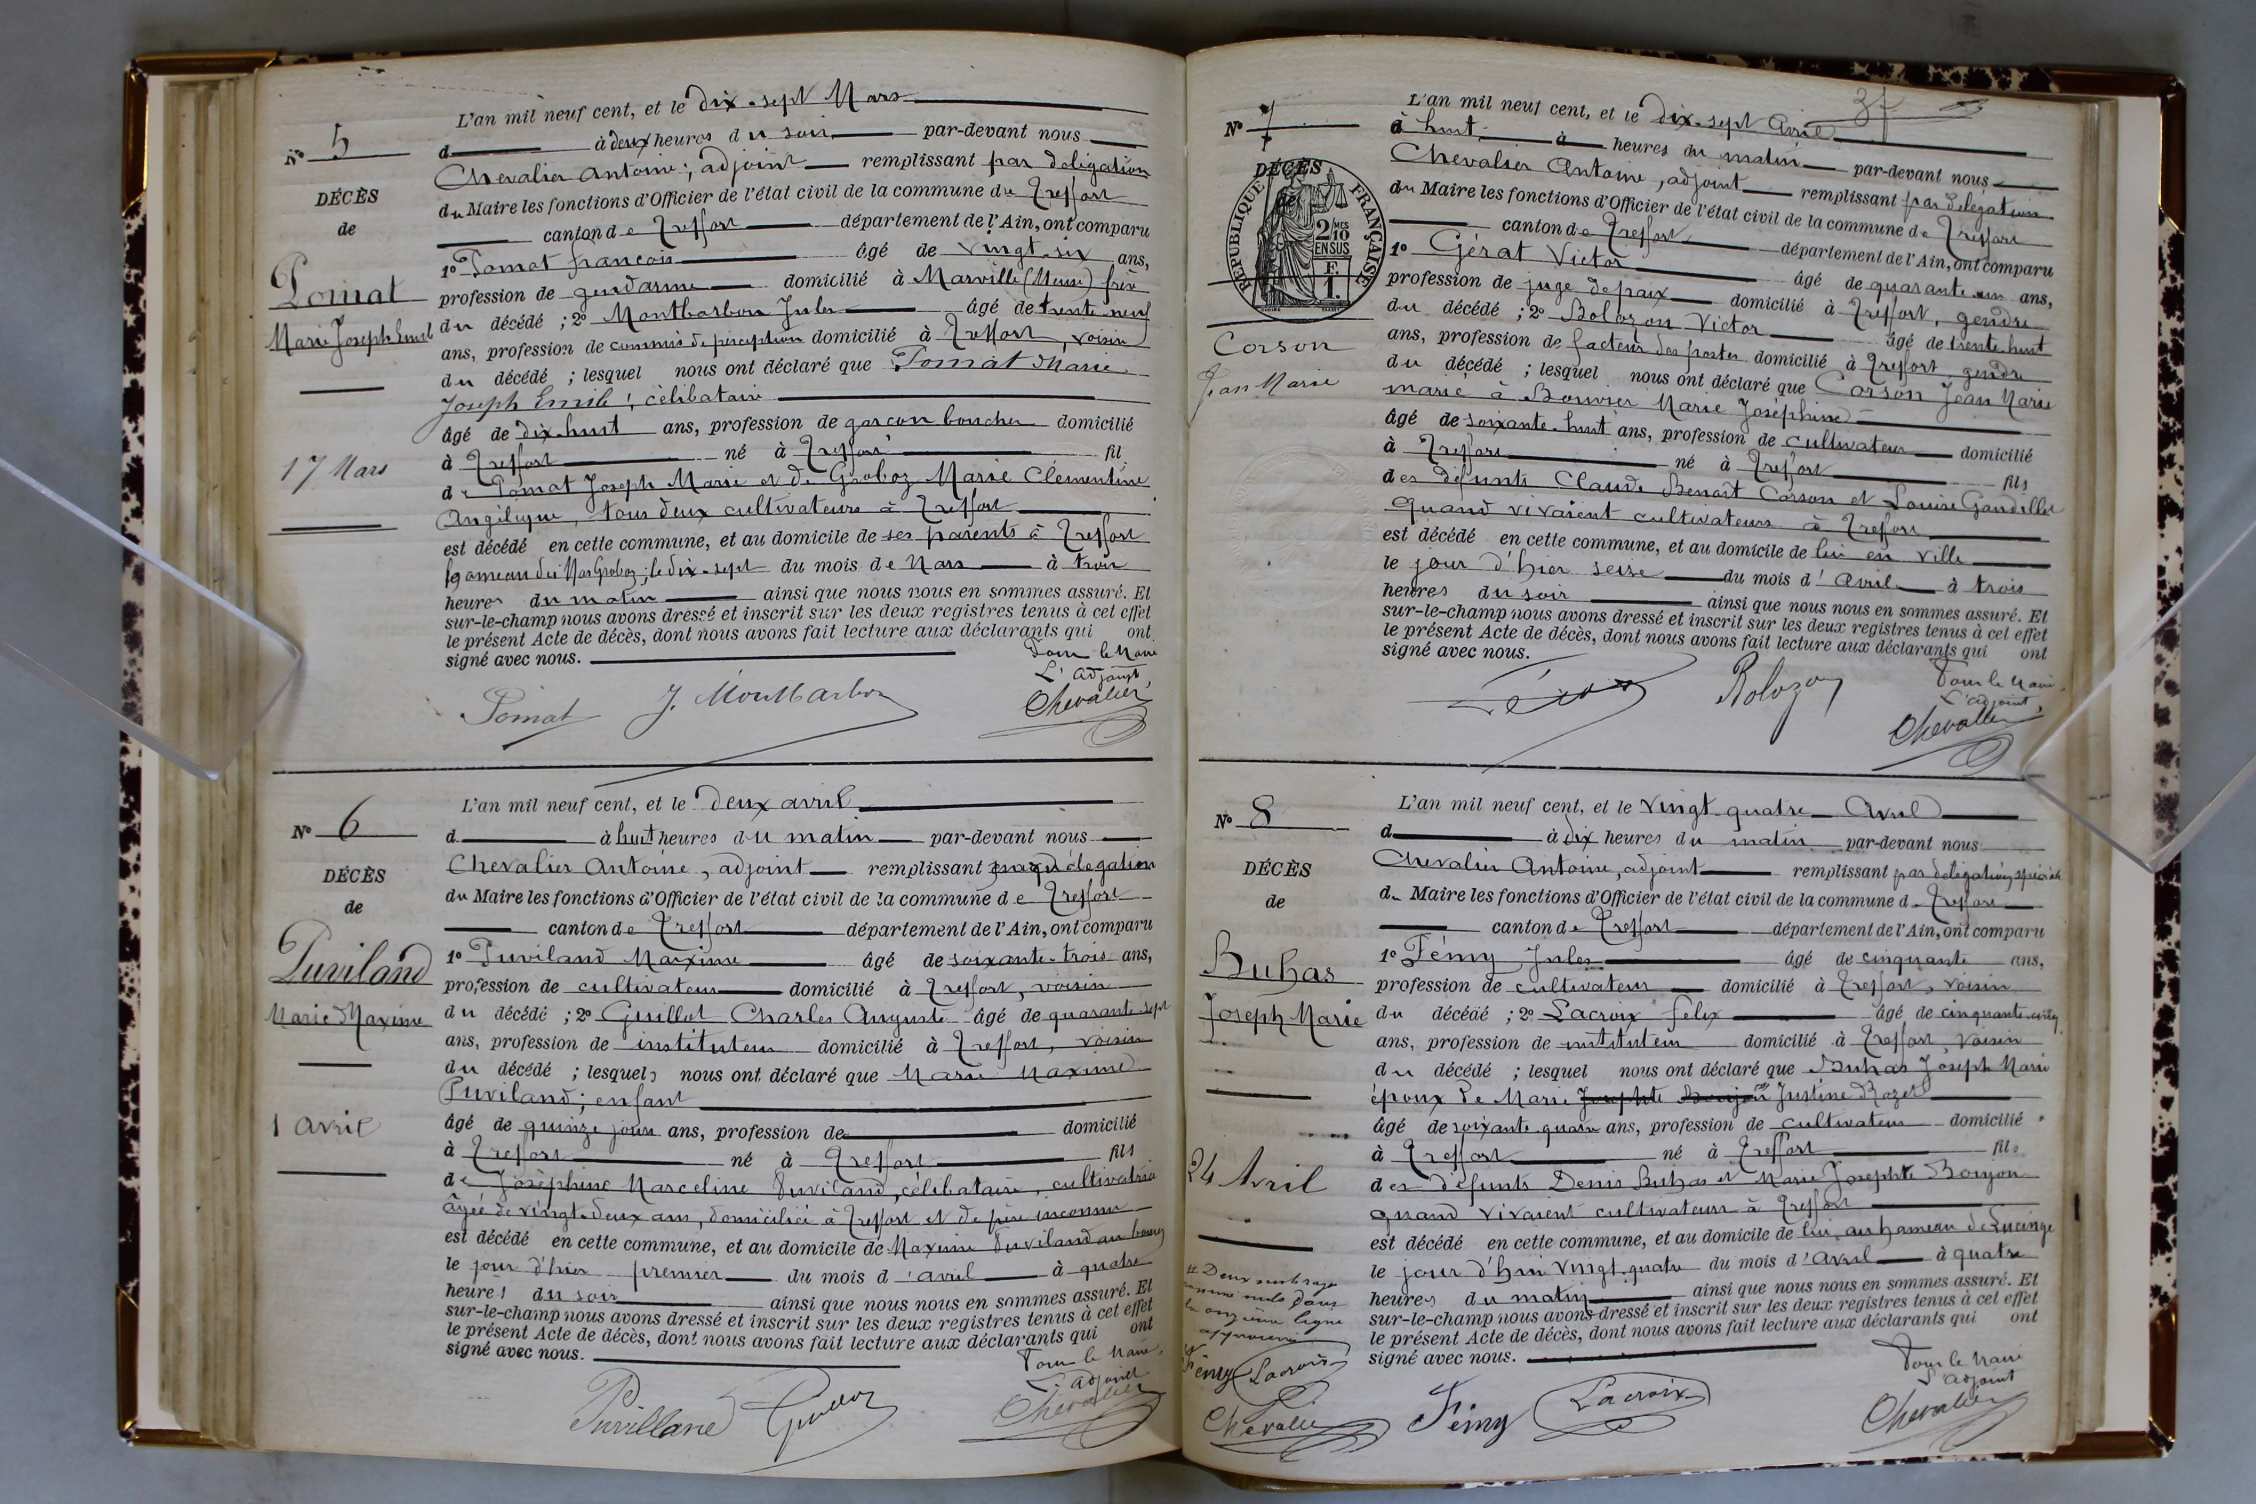 N° 5
DÉCÈS
de
Pomat
Marie Joseph Emile
17 Mars
L'an mil neuf cent, et le dix-sept Mars
d à deux heures du soir par-devant nous
Chevalier Antoine, adjoint remplissant par délégation
du Maire les fonctions d'Officier de l'état civil de la commune de Treffort
canton de Treffort département de l'Ain, ont comparu
1° Pomat françois âgé de vingt-six ans,
profession de gendarme domicilié à Marville (Meuse) frère
du décédé ; 2° Montbarbon Jules âgé de trente neuf
ans, profession de commis de perception domicilié à Treffort, voisin
du décédé ; lesquel nous ont déclaré que Pomat Marie
Joseph Emile, célibataire
âgé de dix-huit ans, profession de garçon boucher domicilié
à Treffort né à Treffort fil
de Pomat Joseph Marie et de Groboz Marie Clémentine
Angélique, tous deux cultivateurs à Treffort
est décédé en cette commune, et au domicile de ses parents à Treffort
hameau des Mas Groboz, le dix-sept du mois de Mars à trois
heures du matin ainsi que nous nous en sommes assuré. Et
sur-le-champ nous avons dressé et inscrit sur les deux registres tenus à cet effet
le présent Acte de décès, dont nous avons fait lecture aux déclarants qui ont
signé avec nous.
Pour le Maire
L'adjoint,
Pomat J. Montbarbon Chevalier
N° 6
DÉCÈS
de
Puviland
Marie Maxime
1 avril
L'an mil neuf cent, et le deux avril
d à huit heures du matin par-devant nous
Chevalier Antoine, adjoint remplissant par délégation
du Maire les fonctions d'Officier de l'état civil de la commune de Treffort
canton de Treffort département de l'Ain, ont comparu
1° Puviland Maxime âgé de soixante-trois ans,
profession de cultivateur domicilié à Treffort, voisin
du décédé ; 2° Guillot Charles Auguste âgé de quarante-sept
ans, profession de instituteur domicilié à Treffort, voisin
du décédé ; lesquels nous ont déclaré que Marie Maxime
Puviland, enfant
âgé de quinze jours ans, profession de domicilié
à Treffort né à Treffort fils
de Josephine Marceline Puviland, célibataire, cultivatrice
âgée de vingt-deux ans, domiciliée à Treffort et de père inconnu
est décédé en cette commune, et au domicile de Maxime Puviland au bourg
le jour d'hier premier du mois d'avril à quatre
heures du soir ainsi que nous nous en sommes assuré. Et
sur-le-champ nous avons dressé et inscrit sur les deux registres tenus à cet effet
le présent Acte de décès, dont nous avons fait lecture aux déclarants qui ont
signé avec nous.
Pour le Maire,
L'adjoint
Puvilland Guillot Chevalier
37
N° 7
DÉCÈS
RÉPUBLIQUE FRANÇAISE
2/10 MES
EN SUS
F.
1.
Corson
Jean Marie
L'an mil neuf cent, et le dix-sept Avril
à huit à heures du matin par-devant nous
Chevalier Antoine, adjoint remplissant par délégation
du Maire les fonctions d'Officier de l'état civil de la commune de Treffort
canton de Treffort département de l'Ain, ont comparu
1° Gérat Victor âgé de quarante un ans,
profession de juge de paix domicilié à Treffort, gendre
du décédé ; 2° Bolozon Victor âgé de trente-huit
ans, profession de facteur des postes domicilié à Treffort, gendre
du décédé ; lesquel nous ont déclaré que Corson Jean Marie
marié à Bouvier Marie Joséphine
âgé de soixante-huit ans, profession de cultivateur domicilié
à Treffort né à Treffort fils
des défunts Claude Benoit Corson et Louise Gandillet
quand vivaient cultivateurs à Treffort
est décédé en cette commune, et au domicile de lui en ville
le jour d'hier seize du mois d'Avril à trois
heures du soir ainsi que nous nous en sommes assuré. Et
sur-le-champ nous avons dressé et inscrit sur les deux registres tenus à cet effet
le présent Acte de décès, dont nous avons fait lecture aux déclarants qui ont
signé avec nous.
Pour le Maire,
L'adjoint,
Bolozon Chevalier
N° 8
DÉCÈS
de
Buhas
Joseph Marie
24 Avril
L'an mil neuf cent, et le vingt-quatre Avril
d à dix heures du matin par-devant nous
Chevalier Antoine, adjoint remplissant par délégation spéciale
du Maire les fonctions d'Officier de l'état civil de la commune de Treffort
canton de Treffort département de l'Ain, ont comparu
1° Fémy Jules âgé de cinquante ans,
profession de cultivateur domicilié à Treffort, voisin
du décédé ; 2° Lacroix felix âgé de cinquante-cinq
ans, profession de instituteur domicilié à Treffort voisin
du décédé ; lesquel nous ont déclaré que Buhas Joseph Marie
époux de Marie Josephte Bonjon Justine Rozet
âgé de soixante-quatre ans, profession de cultivateur domicilié
à Treffort né à Treffort fils
des défunts Denis Buhas et Marie Josephte Bonjon
quand vivaient cultivateurs à Treffort
est décédé en cette commune, et au domicile de lui, au hameau de Lucinge
le jour d'hui vingt-quatre du mois d'Avril à quatre
heures du matin ainsi que nous nous en sommes assuré. Et
sur-le-champ nous avons dressé et inscrit sur les deux registres tenus à cet effet
le présent Acte de décès, dont nous avons fait lecture aux déclarants qui ont
signé avec nous.
Pour le Maire
L'adjoint
Fémy Lacroix Chevalier
Deux mots rayés
comme nuls dans
la onzième ligne
approuvé
Fémy Lacroix
Chevalier